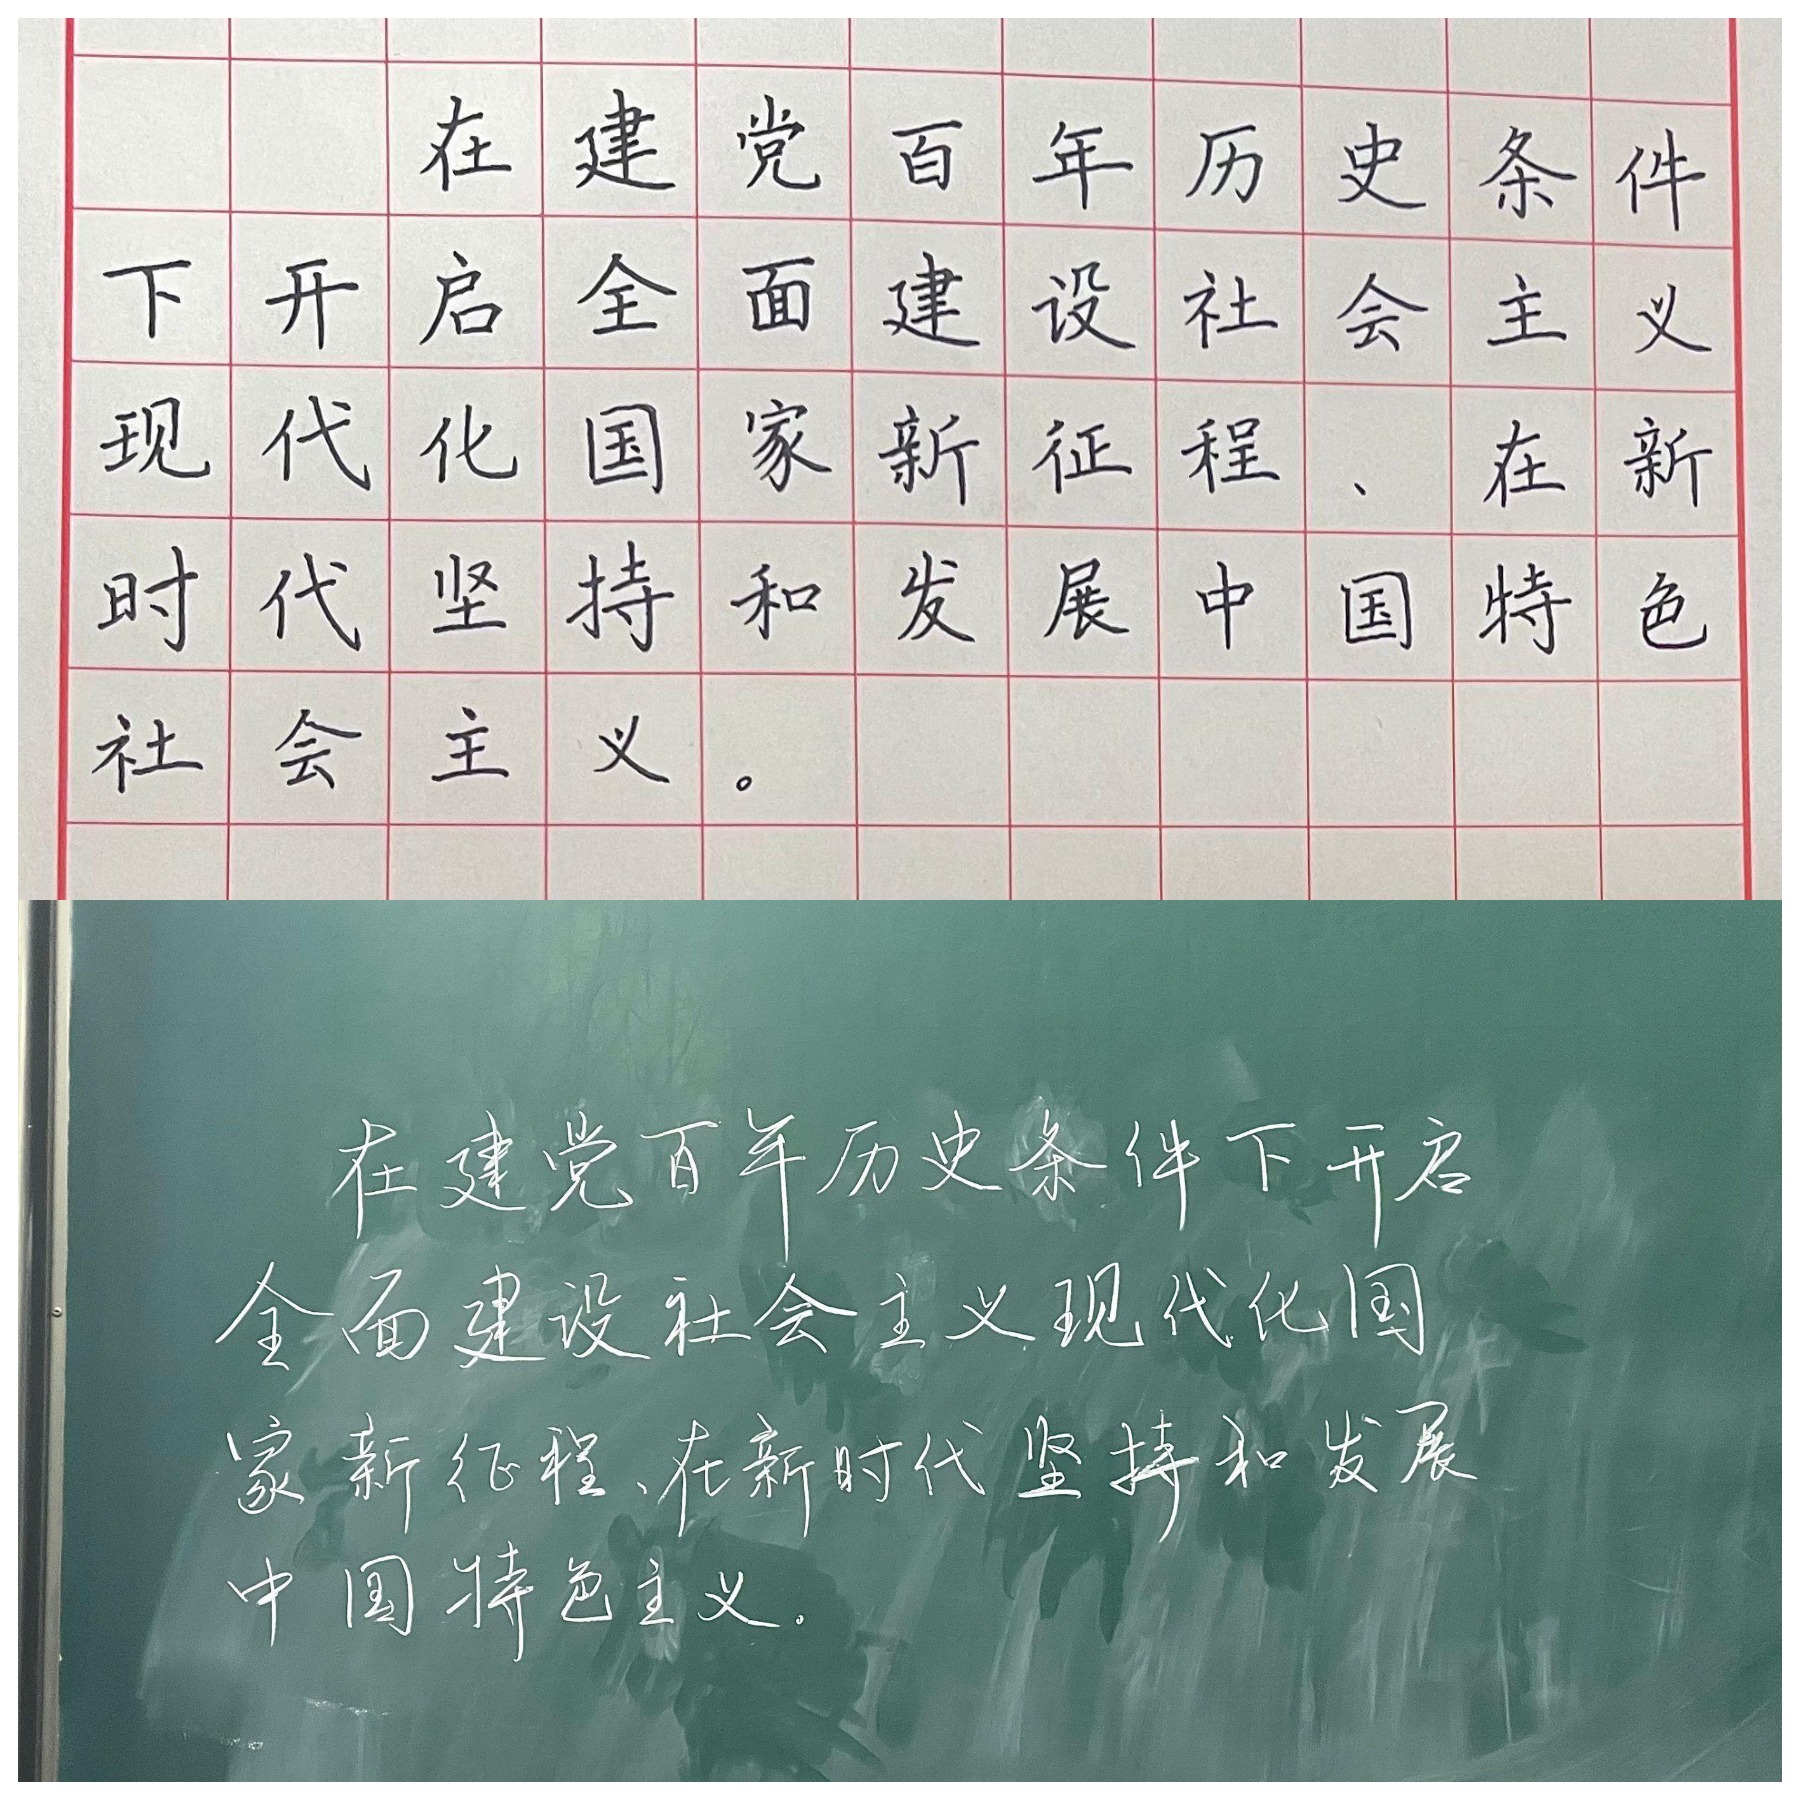 在建党百年历史条件
下开启全面建设社会主义
现代化国家新征程、在新
时代坚持和发展中国特色
社会主义。
在建党百年历史条件下开启
全面建设社会主义现代化国
家新征程、在新时代坚持和发展
中国特色主义。